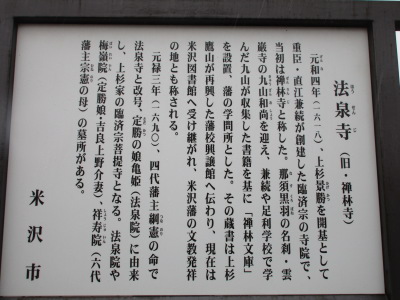 法泉寺(旧・禅林寺)
元和四年(一六一八)、上杉景勝を開基として
重臣・直江兼続が創建した臨済宗の寺院で、
当初は禅林寺と称した。那須黒羽の名刹・雲
巌寺の九山和尚を迎え、兼続や足利学校で学
んだ九山が収集した書籍を基に「禅林文庫」
を設置、藩の学問所とした。その蔵書は上杉
鷹山が再興した藩校興譲館へ伝わり、現在は
米沢図書館へ受け継がれ、米沢藩の文教発祥
の地とも称される。
元禄三年(一六九〇)、四代藩主綱憲の命で
法泉寺と改号、定勝の娘亀姫(法泉院)に由来
し、上杉家の臨済宗菩提寺となる。法泉院や
梅嶺院(定勝娘・吉良上野介妻)、祥寿院(六代
藩主宗憲の母)の墓所がある。
米沢市